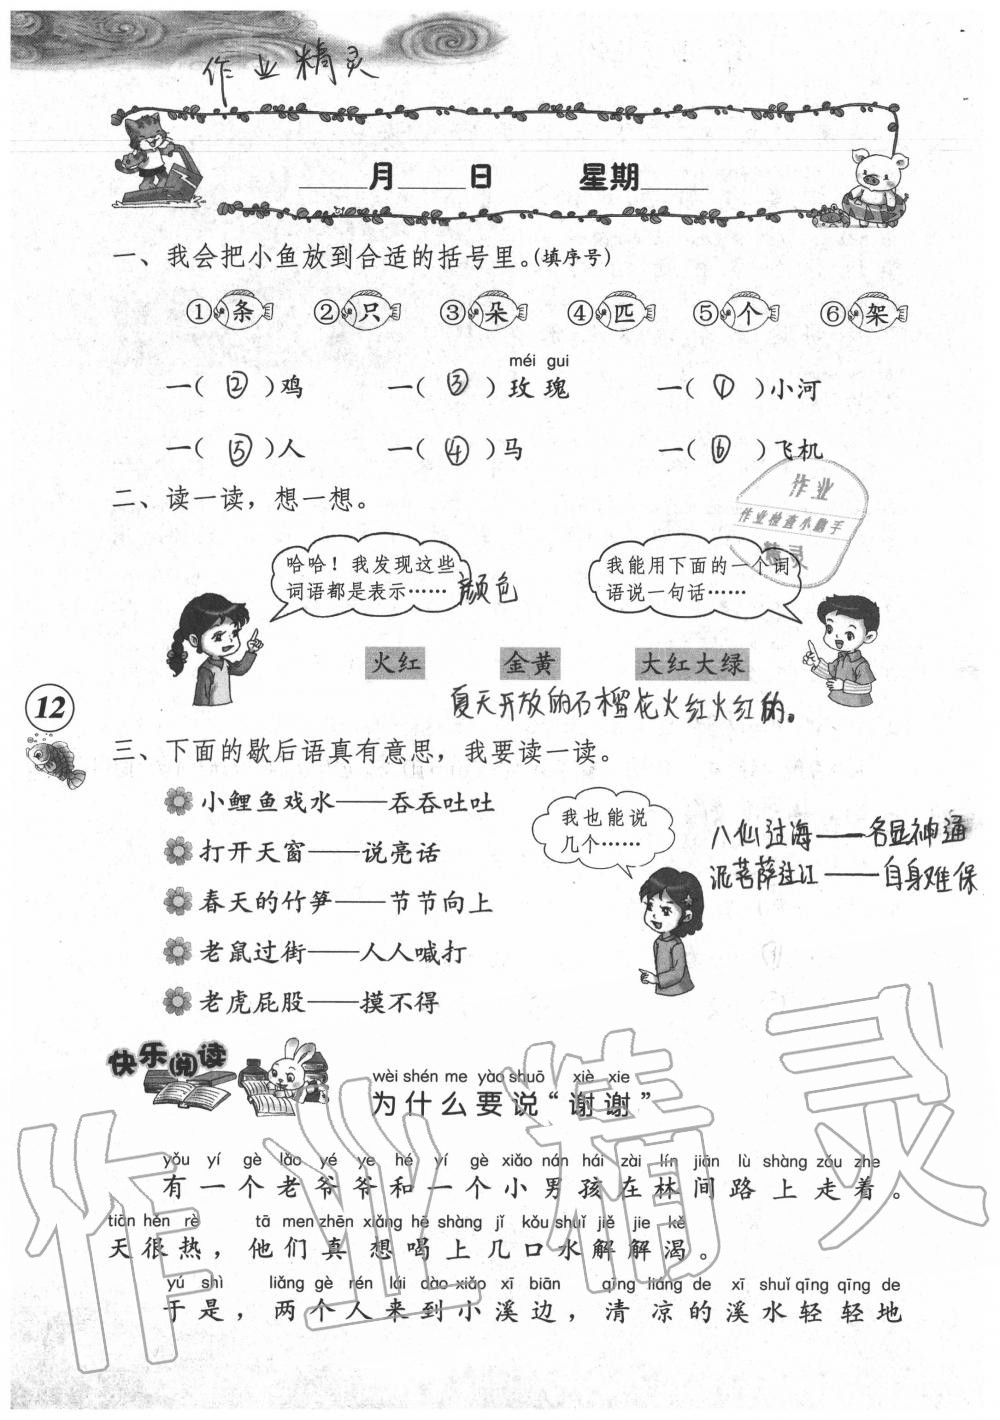 作业精灵
月 日 星期
一、我会把小鱼放到合适的括号里。(填序号)
①条 ②只 ③朵 ④匹 ⑤个 ⑥架
méi gui
一( ② )鸡 一( ③ )玫瑰 一( ① )小河
一( ⑤ )人 一( ④ )马 一( ⑥ )飞机
二、读一读，想一想。
作业
作业检查小帮手
精灵
哈哈！我发现这些
词语都是表示…… 颜色
我能用下面的一个词
语说一句话……
火红 金黄 大红大绿
夏天开放的石榴花火红火红的。
12
三、下面的歇后语真有意思，我要读一读。
小鲤鱼戏水——吞吞吐吐
打开天窗——说亮话
春天的竹笋——节节向上
老鼠过街——人人喊打
老虎屁股——摸不得
我也能说
几个……
八仙过海——各显神通
泥菩萨过江——自身难保
快乐阅读
wèi shén me yào shuō xiè xie
为什么要说“谢谢”
yǒu yí gè lǎo yé ye hé yí gè xiǎo nán hái zài lín jiān lù shàng zǒu zhe
有一个老爷爷和一个小男孩在林间路上走着。
tiān hěn rè tā men zhēn xiǎng hē shàng jǐ kǒu shuǐ jiě jie kě
天很热，他们真想喝上几口水解解渴。
yú shì liǎng gè rén lái dào xiǎo xī biān qīng liáng de xī shuǐ qīng qīng de
于是，两个人来到小溪边，清凉的溪水轻轻地
作业精灵